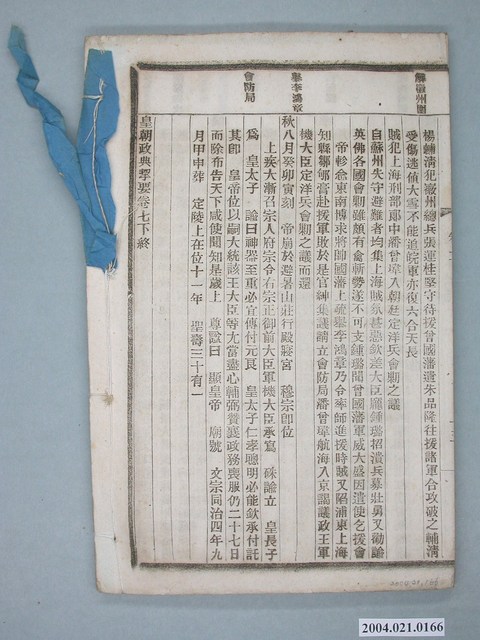 解徽州圍
舉李鴻章
會防局
楊輔清犯徽州總兵張運桂堅守待援曾國藩遣朱品隆往援諸軍合攻破之輔清
受傷逃值大雪不能進皖軍亦復六合天長
賊犯上海刑部郎中潘曾瑋入朝趕定洋兵會剿之議
自蘇州失守避難者均集上海賊氛甚惡欽差大臣龐鍾璐招潰兵募壯勇又勸諭
英佛各國會剿雖頗有禽斬勢遂不可支鍾璐聞曾國藩軍威大盛因遣使乞援會
帝軫念東南博求將帥國藩上疏舉李鴻章乃令率師進援時賊又陷浦東上海
知縣鄒郇膏赴援軍敗於是官紳集議請立會防局潘曾瑋航海入京謁議政王軍
機大臣定洋兵會剿之議而還
秋八月癸卯寅刻 帝崩於避暑山莊行殿寢宮 穆宗卽位
上疾大漸召宗人府宗令右宗正御前大臣軍機大臣承寫 硃諭立 皇長子
爲 皇太子 諭曰神器至重必宜傳付元良 皇太子仁孝聰明必能欽承付託
其卽 皇帝位以嗣大統該王大臣等尤當盡心輔弼贊襄政務喪服仍二十七日
而除布告天下咸使聞知是歲上 尊諡曰 顯皇帝 廟號 文宗同治四年九
月甲申葬 定陵上在位十一年 聖壽三十有一
皇朝政典挈要卷七下終
2004.021.0166